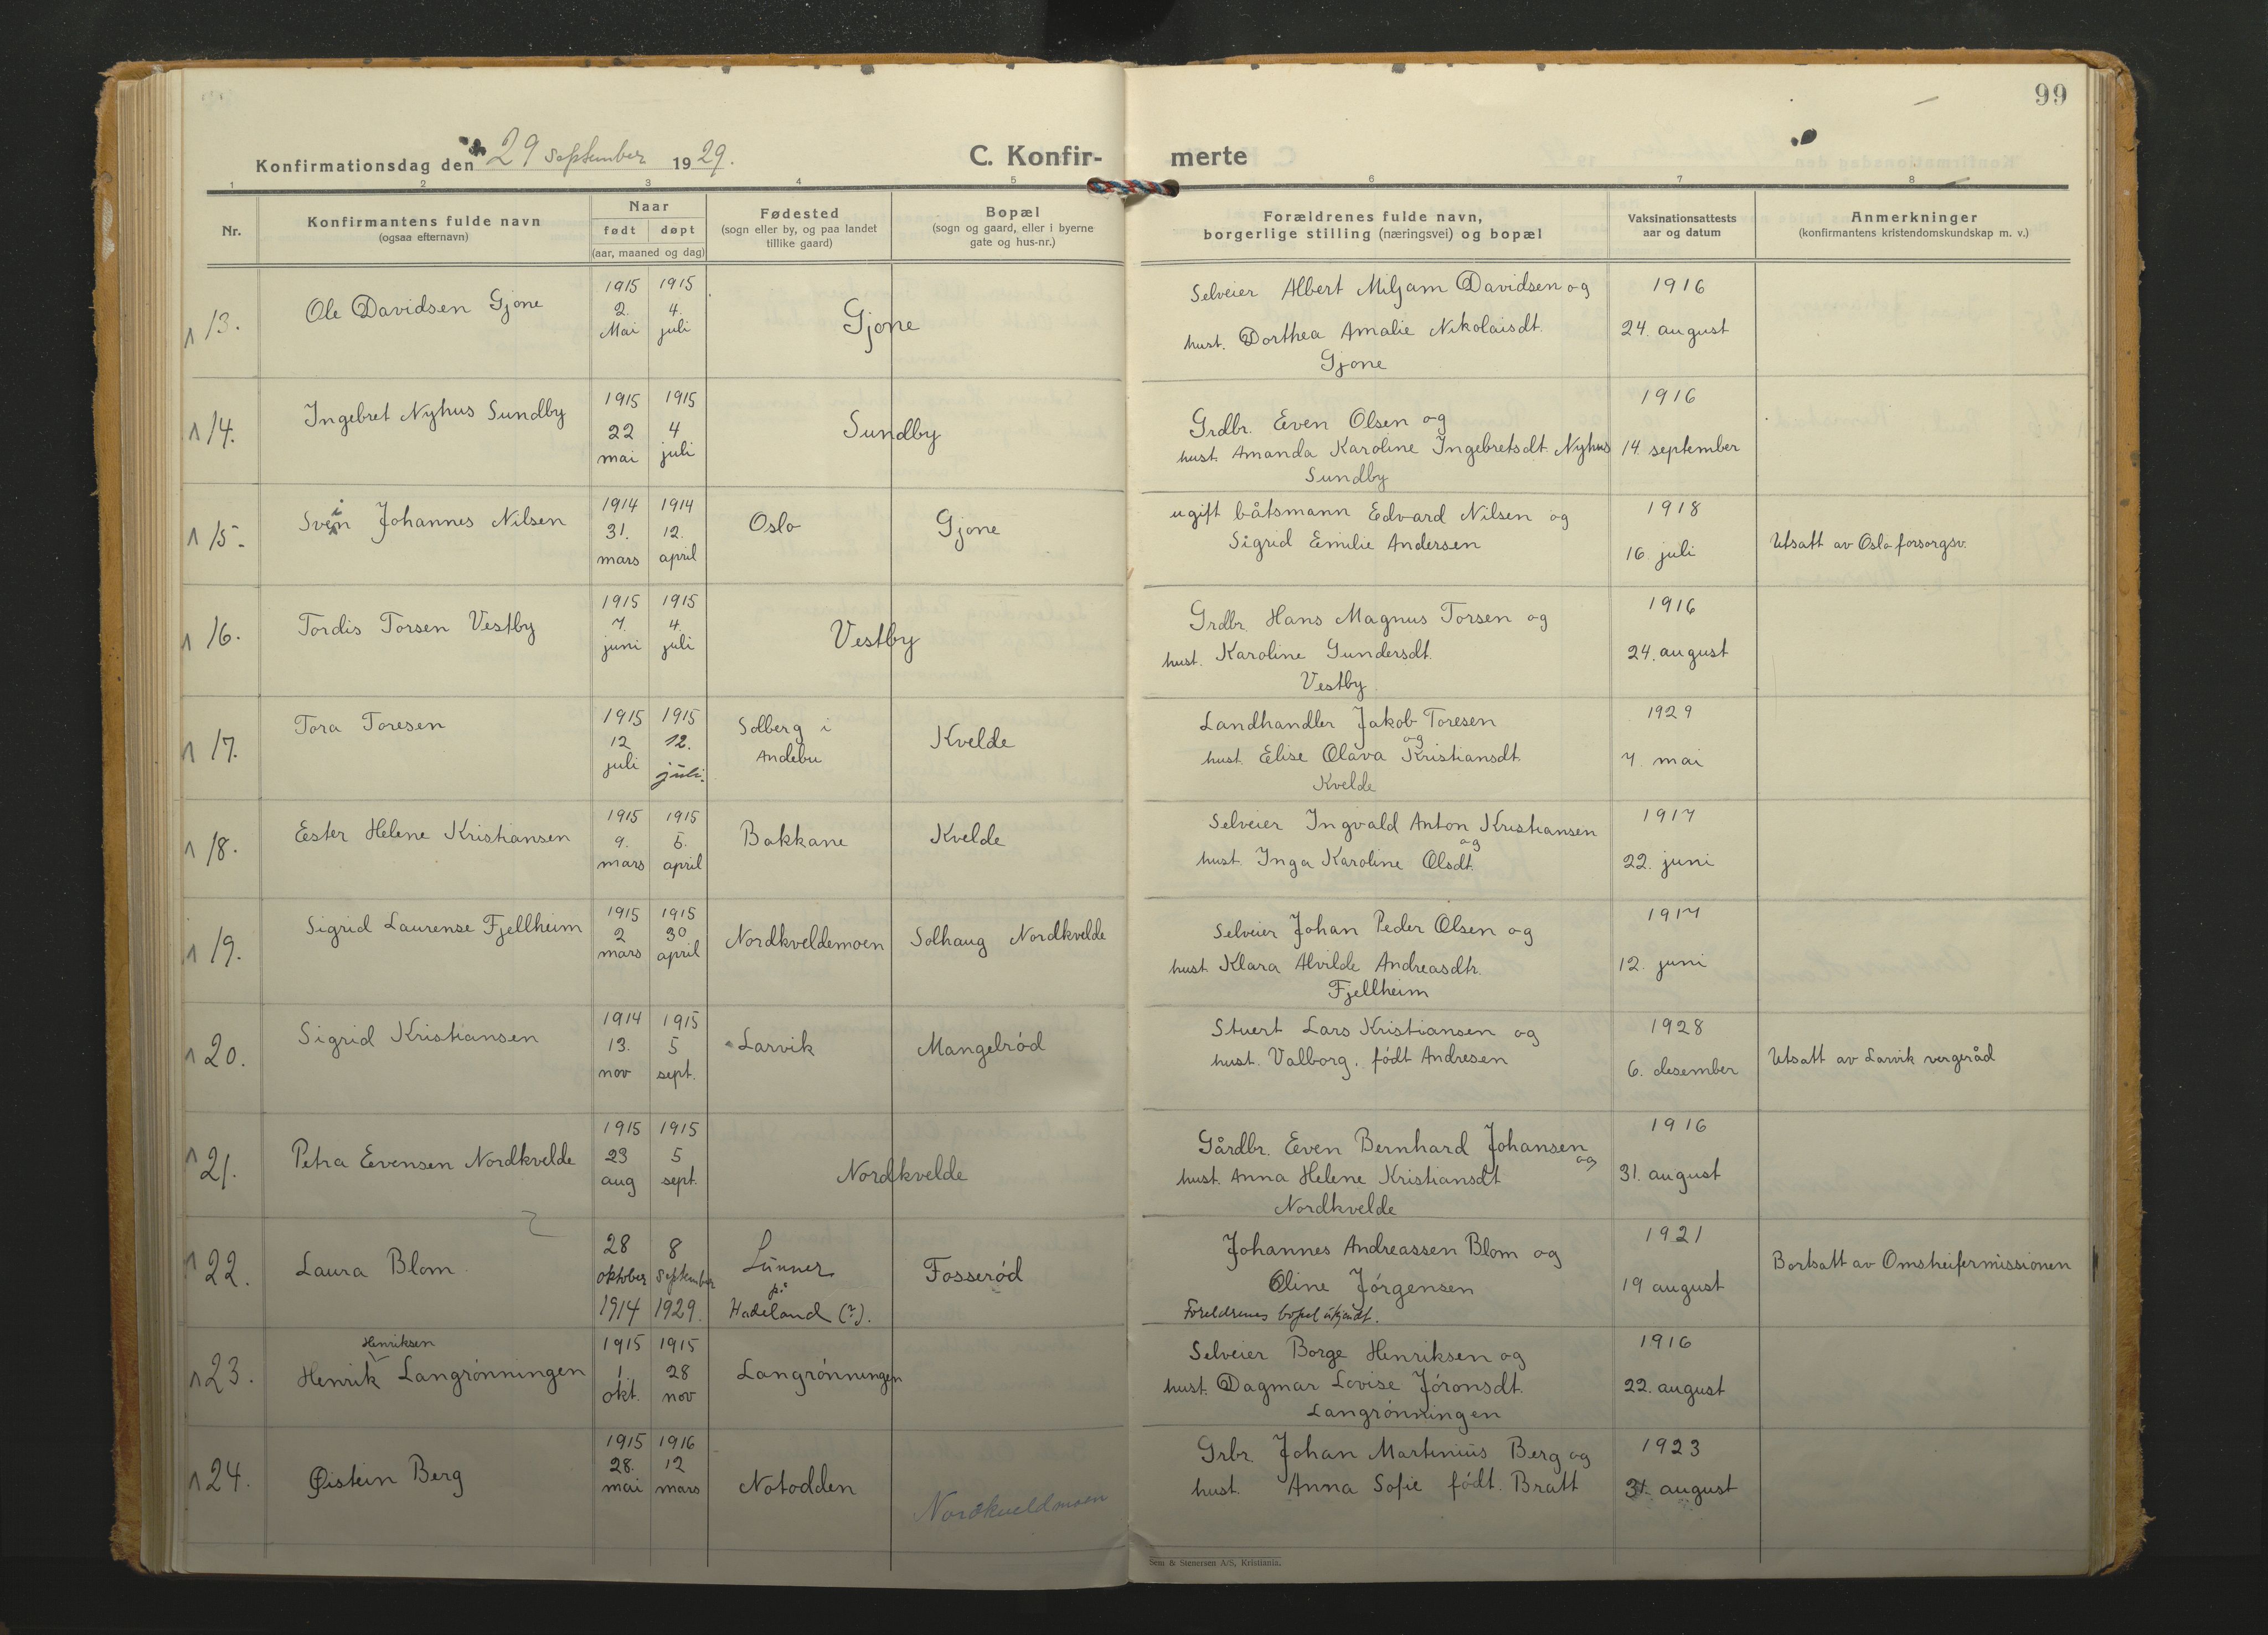 99
Konfirmationsdag den 29 September 1929.
C. Konfir- merte
1 2 3 4 5 6 7 8
Nr.
Konfirmantens fulde navn
(ogsaa efternavn)
Naar
født døpt
(aar, maaned og dag)
Fødested
(sogn eller by, og paa landet
tillike gaard)
Bopæl
(sogn og gaard, eller i byerne
gate og hus-nr.)
Forældrenes fulde navn,
borgerlige stilling (næringsvei) og bopæl
Vaksinationsattests
aar og datum
Anmerkninger
(konfirmantens kristendomskundskap m. v.)
13.
Ole Davidsen Gjone
1915 1915
2. 4.
Mai juli
Gjone
Selveier Albert Miljam Davidsen og
hust. Dorthea Amalie Nikolaisdt.
Gjone
1916
24. august
14.
Ingebret Nyhus Sundby
1915 1915
22 4
mai juli
Sundby
Grdbr. Even Olsen og
hust. Amanda Karoline Ingebretsdt. Nyhus
Sundby
1916
14. september
15.
Svein Johannes Nilsen
1914 1914
31. 12.
mars april
Oslo
Gjone
ugift båtsmann Edvard Nilsen og
Sigrid Emilie Andersen
1918
16. juli
Utsatt av Oslo forsorgsv.
16.
Tordis Torsen Vestby
1915 1915
7. 4.
juni juli
Vestby
Grdbr. Hans Magnus Torsen og
hust. Karoline Gundersdt.
Vestby
1916
24. august
17.
Tora Toresen
1915 1915
12 12.
juli juli.
Solberg i
Andebu
Kvelde
Landhandler Jakob Toresen
og
hust. Elise Olava Kristiansdt.
Kvelde
1929
7. mai
18.
Ester Helene Kristiansen
1915 1915
9. 5.
mars april
Bakkane
Kvelde
Selveier Ingvald Anton Kristiansen
og
hust. Inga Karoline Olsdt.
1917
22. juni
19.
Sigrid Laurense Fjellheim
1915 1915
2 30
mars april
Nordkveldemoen
Solhaug Nordkvelde
Selveier Johan Peder Olsen og
hust. Klara Alvilde Andreasdtr.
Fjellheim
1917
12. juni
20.
Sigrid Kristiansen
1914 1915
13. 5
nov sept.
Larvik
Mangelrød
Stuert Lars Kristiansen og
hust. Valborg, født Andresen
1928
6. desember
Utsatt av Larvik vergeråd
21.
Petra Evensen Nordkvelde
1915 1915
23 5
aug sept.
Nordkvelde
Gårdbr. Even Bernhard Johansen
og
hust. Anna Helene Kristiansdt
Nordkvelde
1916
31. august
22.
Laura Blom
28 8
oktober September
1914 1929.
Lunner
på
Hadeland (?).
Fosserød
Johannes Andreassen Blom og
Oline Jørgensen
Foreldrenes bopel ukjendt.
1921
19 august
Bortsatt av Omstreifermissionen
23.
Henriksen
Henrik Langrønningen
1915 1915
1. 28
okt. nov
Langrønningen
Selveier Borge Henriksen og
hust. Dagmar Lovise Jøronsdt.
Langrønningen
1916
22. august
24.
Øistein Berg
1915 1916
28. 12
mai mars
Notodden
Nordkveldmoen
Grbr. Johan Martinius Berg og
hust. Anna Sofie født. Bratt
1923
31. august
Sem & Stenersen A/S, Kristiania.